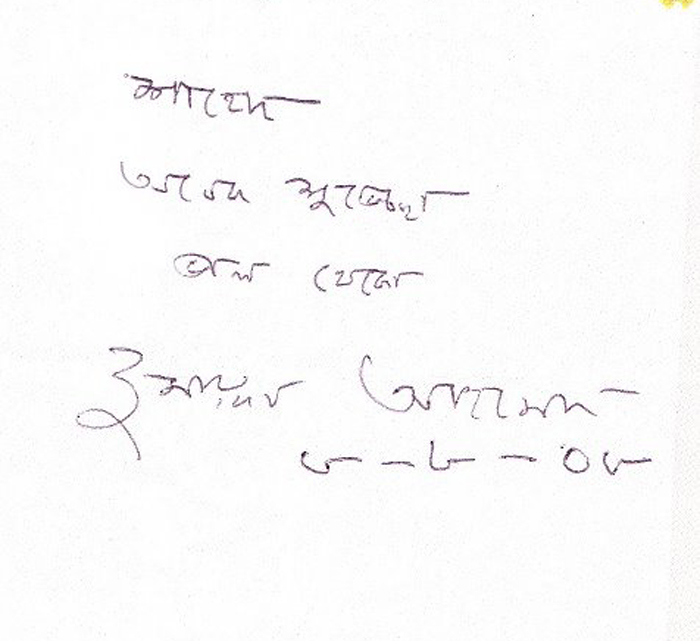 শাহেদ
অনেক শুভেচ্ছা
ভাল থেকো
হুমায়ূন আহমেদ
৮-৮-০৮